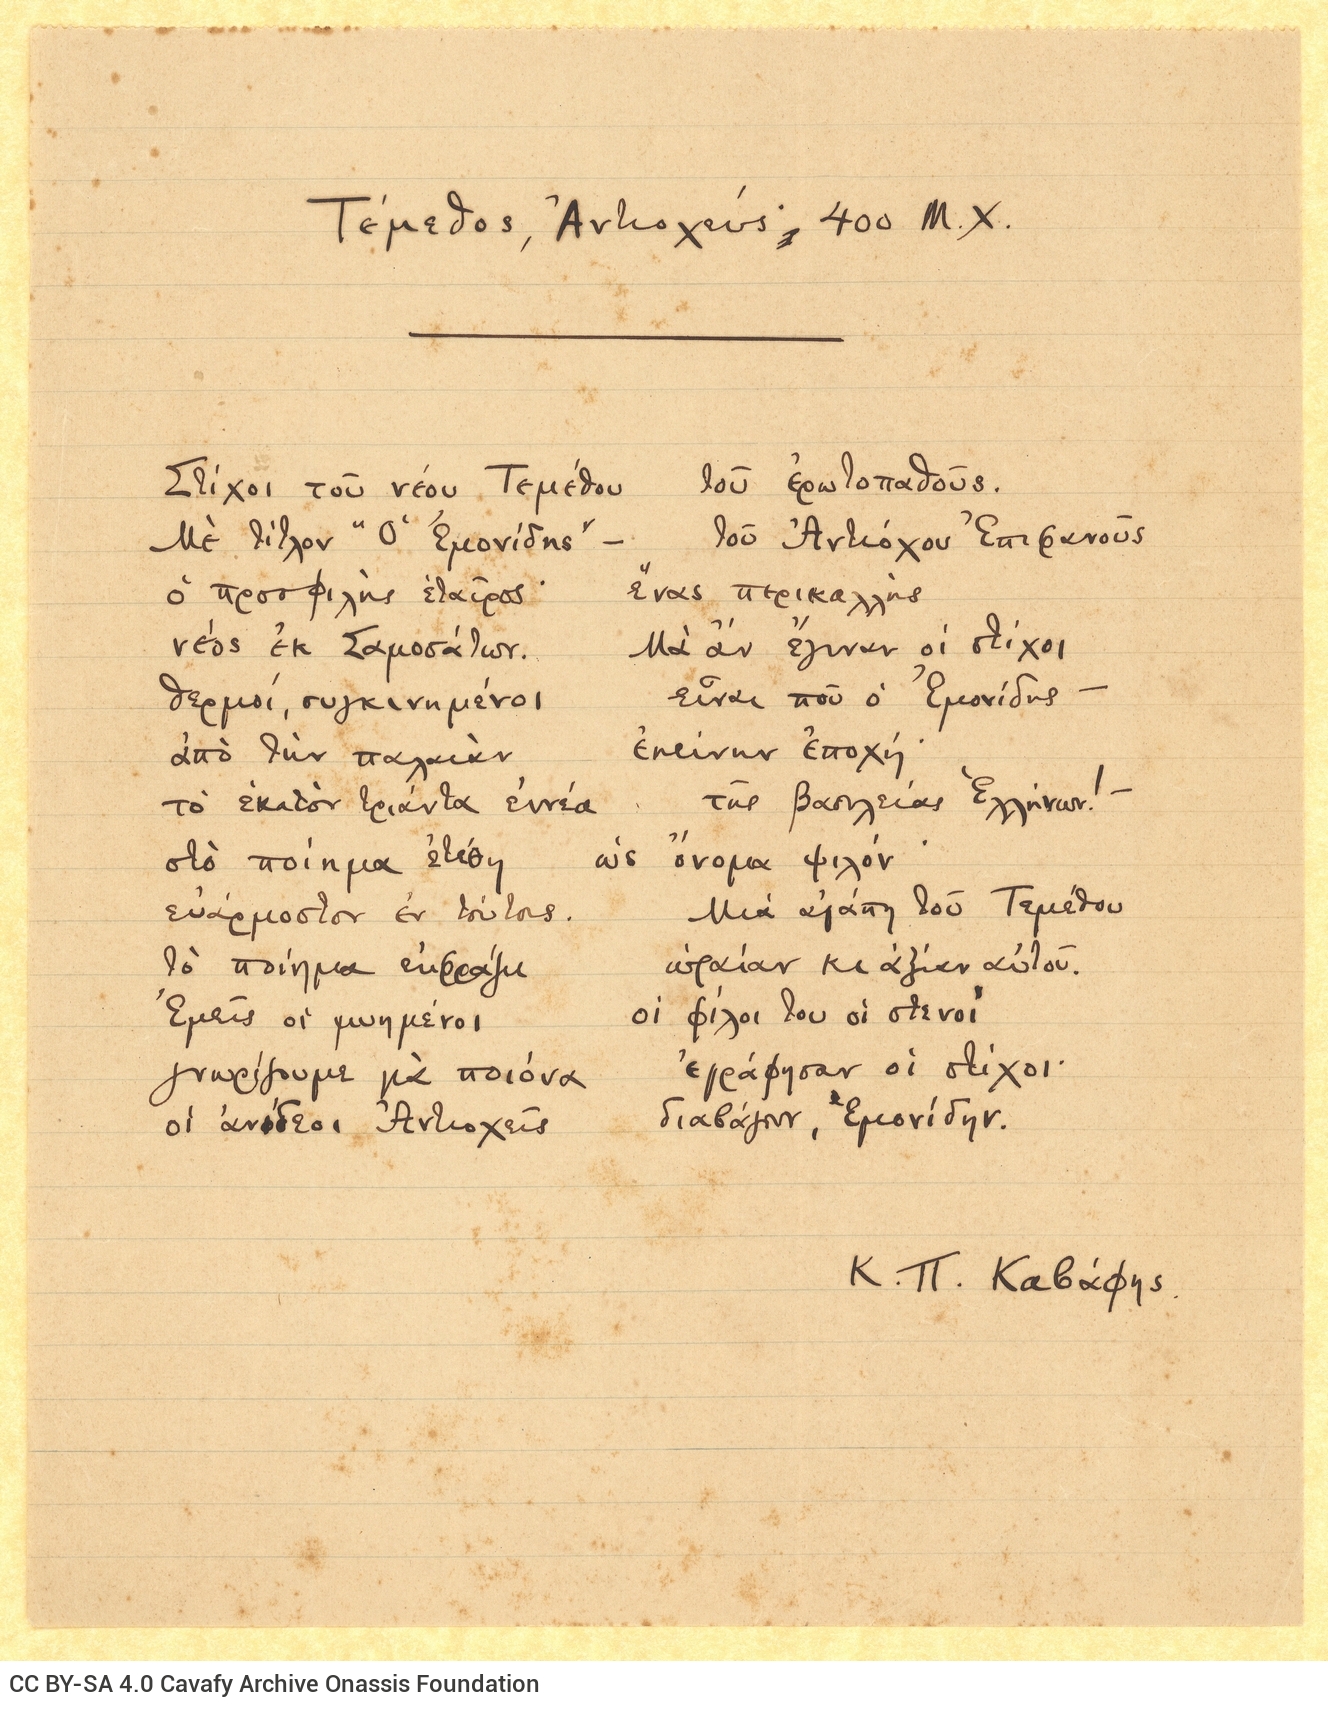 Τέμεθος, Ἀντιοχεύς· 400 Μ.Χ.
Στίχοι τοῦ νέου Τεμέθου τοῦ ἐρωτοπαθοῦς.
Μὲ τίτλον "Ὁ Ἐμονίδης" — τοῦ Ἀντιόχου Ἐπιφανοῦς
ὁ προσφιλὴς ἑταῖρος· ἕνας περικαλλὴς
νέος ἐκ Σαμοσάτων. Μὰ ἂν ἔγιναν οἱ στίχοι
θερμοί, συγκινημένοι εἶναι ποῦ ὁ Ἐμονίδης —
ἀπὸ τὴν παλαιὰν ἐκείνην ἐποχή·
τὸ ἑκατὸν τριάντα ἐννέα τῆς βασιλείας Ἑλλήνων! —
στὸ ποίημα ἐτέθη ὡς ὄνομα ψιλόν·
εὐάρμοστον ἐν τούτοις. Μιὰ ἀγάπη τοῦ Τεμέθου
τὸ ποίημα ἐκφράζει ὡραίαν κι ἀξίαν αὐτοῦ.
Ἐμεῖς οἱ μυημένοι οἱ φίλοι του οἱ στενοὶ
γνωρίζουμε γιὰ ποιόνα ἐγράφησαν οἱ στίχοι·
οἱ ἀνίδεοι Ἀντιοχεῖς διαβάζουν, Ἐμονίδην.
Κ. Π. Καβάφης.
CC BY-SA 4.0 Cavafy Archive Onassis Foundation